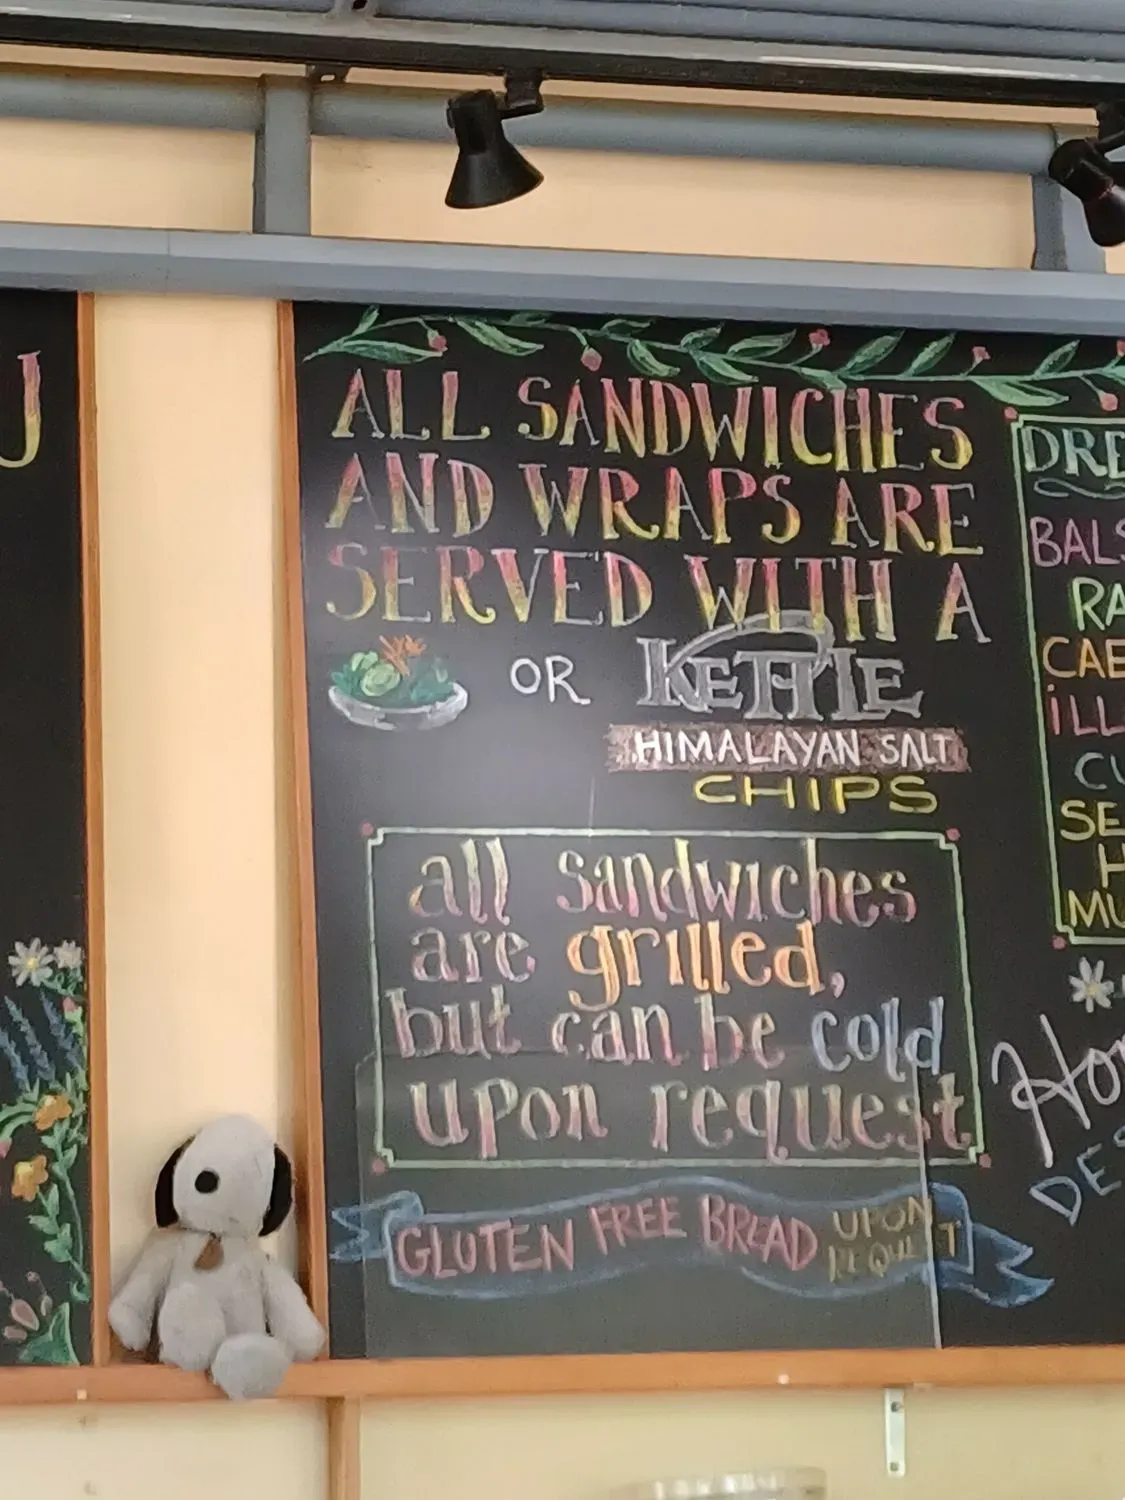 ALL SANDWICHES
AND WRAPS ARE
SERVED WITH A
OR KETTLE
HIMALAYAN SALT
CHIPS
all sandwiches
are grilled,
but can be cold
upon request
GLUTEN FREE BREAD UPON
REQUEST